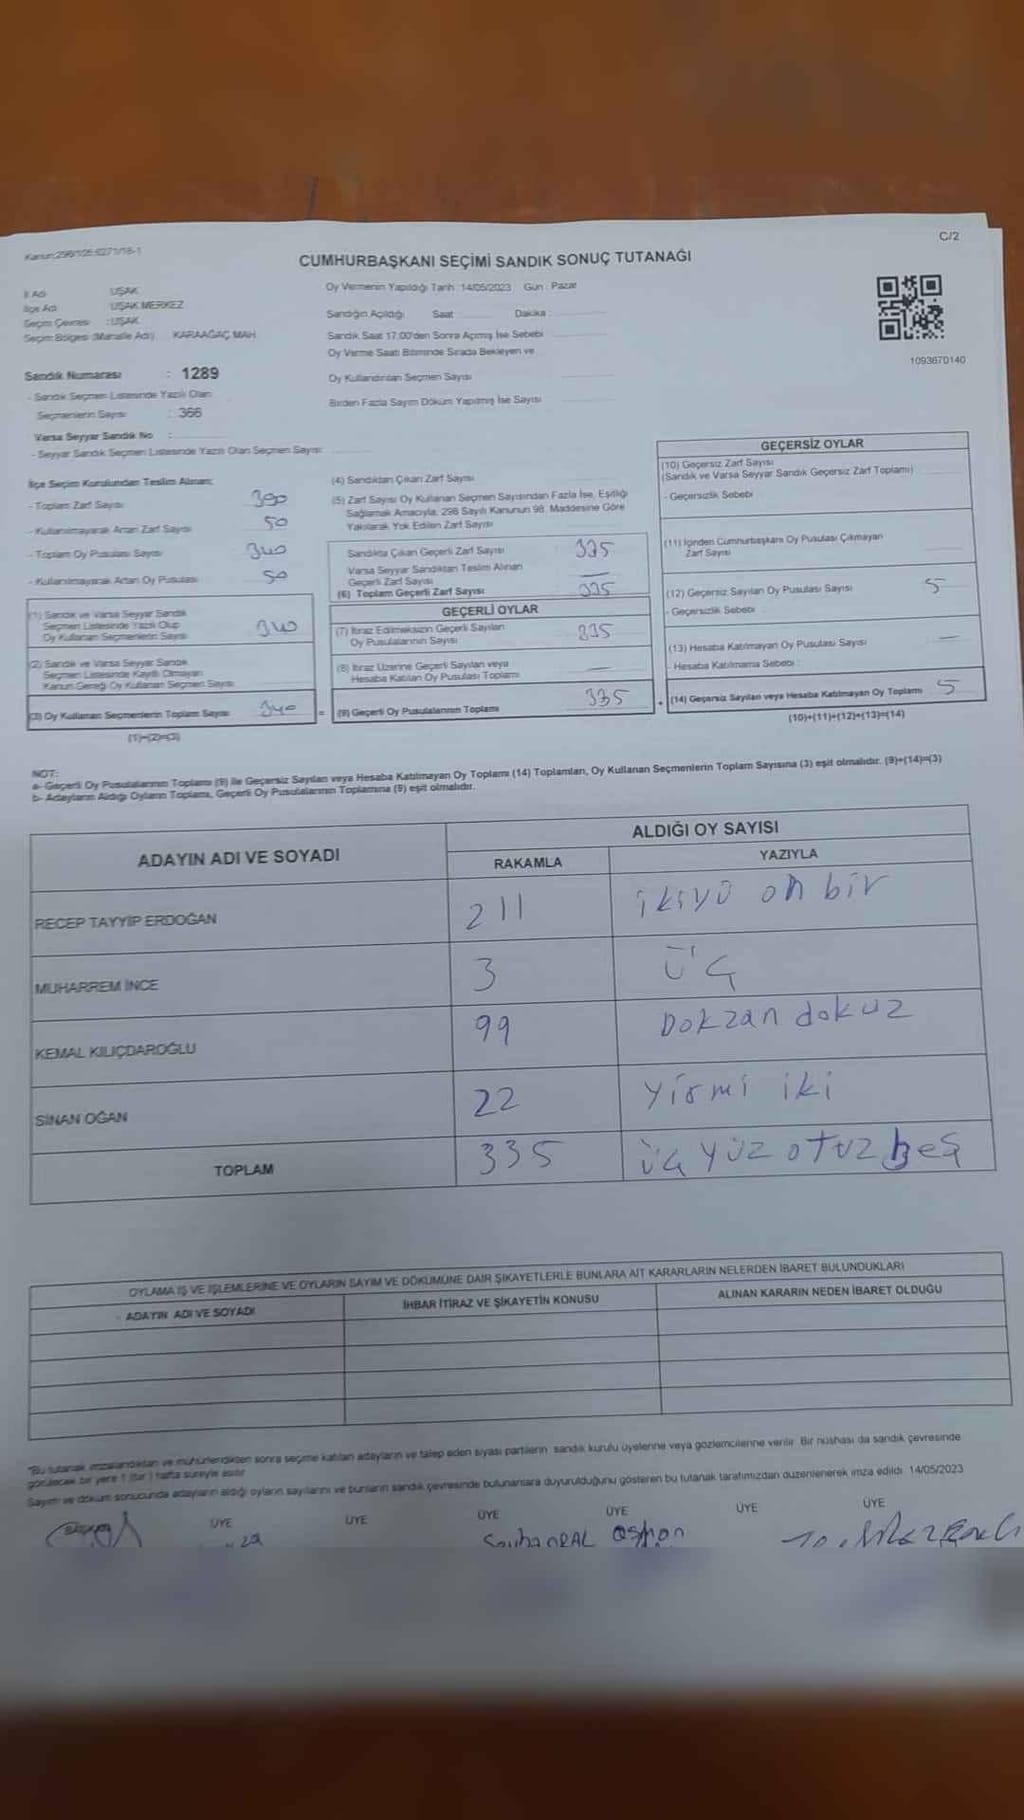 Kanun:298/105.6271/18-1
C/2
CUMHURBAŞKANI SEÇİMİ SANDIK SONUÇ TUTANAĞI
İl Adı UŞAK
İlçe Adı UŞAK MERKEZ
Seçim Çevresi : UŞAK
Seçim Bölgesi (Mahalle Adı) KARAAĞAÇ MAH.
Oy Vermenin Yapıldığı Tarih :14/05/2023 Gün : Pazar
Sandığın Açıldığı Saat Dakika :
Sandık Saat 17.00'den Sonra Açmış İse Sebebi
Oy Verme Saati Bitiminde Sırada Bekleyen ve
Oy Kullandırılan Seçmen Sayısı
Birden Fazla Sayım Döküm Yapılmış İse Sayısı
1093670140
Sandık Numarası : 1289
- Sandık Seçmen Listesinde Yazılı Olan
Seçmenlerin Sayısı : 366
Varsa Seyyar Sandık No :
- Seyyar Sandık Seçmen Listesinde Yazılı Olan Seçmen Sayısı
İlçe Seçim Kurulundan Teslim Alınan:
- Toplam Zarf Sayısı
- Kullanılmayarak Artan Zarf Sayısı 50
- Toplam Oy Pusulası Sayısı 340
- Kullanılmayarak Artan Oy Pusulası 50
(1) Sandık ve Varsa Seyyar Sandık
Seçmen Listesinde Yazılı Olup
Oy Kullanan Seçmenlerin Sayısı 340
(2) Sandık ve Varsa Seyyar Sandık
Seçmen Listesinde Kayıtlı Olmayan
Kanun Gereği Oy Kullanan Seçmen Sayısı
(3) Oy Kullanan Seçmenlerin Toplam Sayısı 340 =
(1)+(2)=(3)
(4) Sandıktan Çıkan Zarf Sayısı
(5) Zarf Sayısı Oy Kullanan Seçmen Sayısından Fazla İse, Eşitliği
Sağlamak Amacıyla, 298 Sayılı Kanunun 98. Maddesine Göre
Yakılarak Yok Edilen Zarf Sayısı
Sandıkta Çıkan Geçerli Zarf Sayısı 335
Varsa Seyyar Sandıktan Teslim Alınan
Geçerli Zarf Sayısı —
(6) Toplam Geçerli Zarf Sayısı 335
GEÇERLİ OYLAR
(7) İtiraz Edilmeksizin Geçerli Sayılan
Oy Pusulalarının Sayısı 335
(8) İtiraz Üzerine Geçerli Sayılan veya
Hesaba Katılan Oy Pusulası Toplamı —
(9) Geçerli Oy Pusulalarının Toplamı 335 +
GEÇERSİZ OYLAR
(10) Geçersiz Zarf Sayısı
(Sandık ve Varsa Seyyar Sandık Geçersiz Zarf Toplamı)
- Geçersizlik Sebebi
(11) İçinden Cumhurbaşkanı Oy Pusulası Çıkmayan
Zarf Sayısı
(12) Geçersiz Sayılan Oy Pusulası Sayısı 5
- Geçersizlik Sebebi
(13) Hesaba Katılmayan Oy Pusulası Sayısı —
- Hesaba Katılmama Sebebi :
(14) Geçersiz Sayılan veya Hesaba Katılmayan Oy Toplamı 5
(10)+(11)+(12)+(13)=(14)
NOT:
a- Geçerli Oy Pusulalarının Toplamı (9) ile Geçersiz Sayılan veya Hesaba Katılmayan Oy Toplamı (14) Toplamları, Oy Kullanan Seçmenlerin Toplam Sayısına (3) eşit olmalıdır. (9)+(14)=(3)
b- Adayların Aldığı Oyların Toplamı, Geçerli Oy Pusulalarının Toplamına (9) eşit olmalıdır.
ADAYIN ADI VE SOYADI
ALDIĞI OY SAYISI
RAKAMLA YAZIYLA
RECEP TAYYİP ERDOĞAN 211 ikiyü on bir
MUHARREM İNCE 3 üç
KEMAL KILIÇDAROĞLU 99 Dokzan dokuz
SİNAN OĞAN 22 yirmi iki
TOPLAM 335 üç yüz otuz beş
OYLAMA İŞ VE İŞLEMLERİNE VE OYLARIN SAYIM VE DÖKÜMÜNE DAİR ŞİKAYETLERLE BUNLARA AİT KARARLARIN NELERDEN İBARET BULUNDUKLARI
ADAYIN ADI VE SOYADI İHBAR İTİRAZ VE ŞİKAYETİN KONUSU ALINAN KARARIN NEDEN İBARET OLDUĞU
"Bu tutanak imzalandıktan ve mühürlendikten sonra seçime katılan adayların ve talep eden siyasi partilerin sandık kurulu üyelerine veya gözlemcilerine verilir. Bir nüshası da sandık çevresinde
görülecek bir yere 1 (bir ) hafta süreyle asılır
Sayım ve döküm sonucunda adayların aldığı oyların sayılarını ve bunların sandık çevresinde bulunanlara duyurulduğunu gösteren bu tutanak tarafımızdan düzenlenerek imza edildi. 14/05/2023
ÜYE ÜYE ÜYE ÜYE ÜYE ÜYE